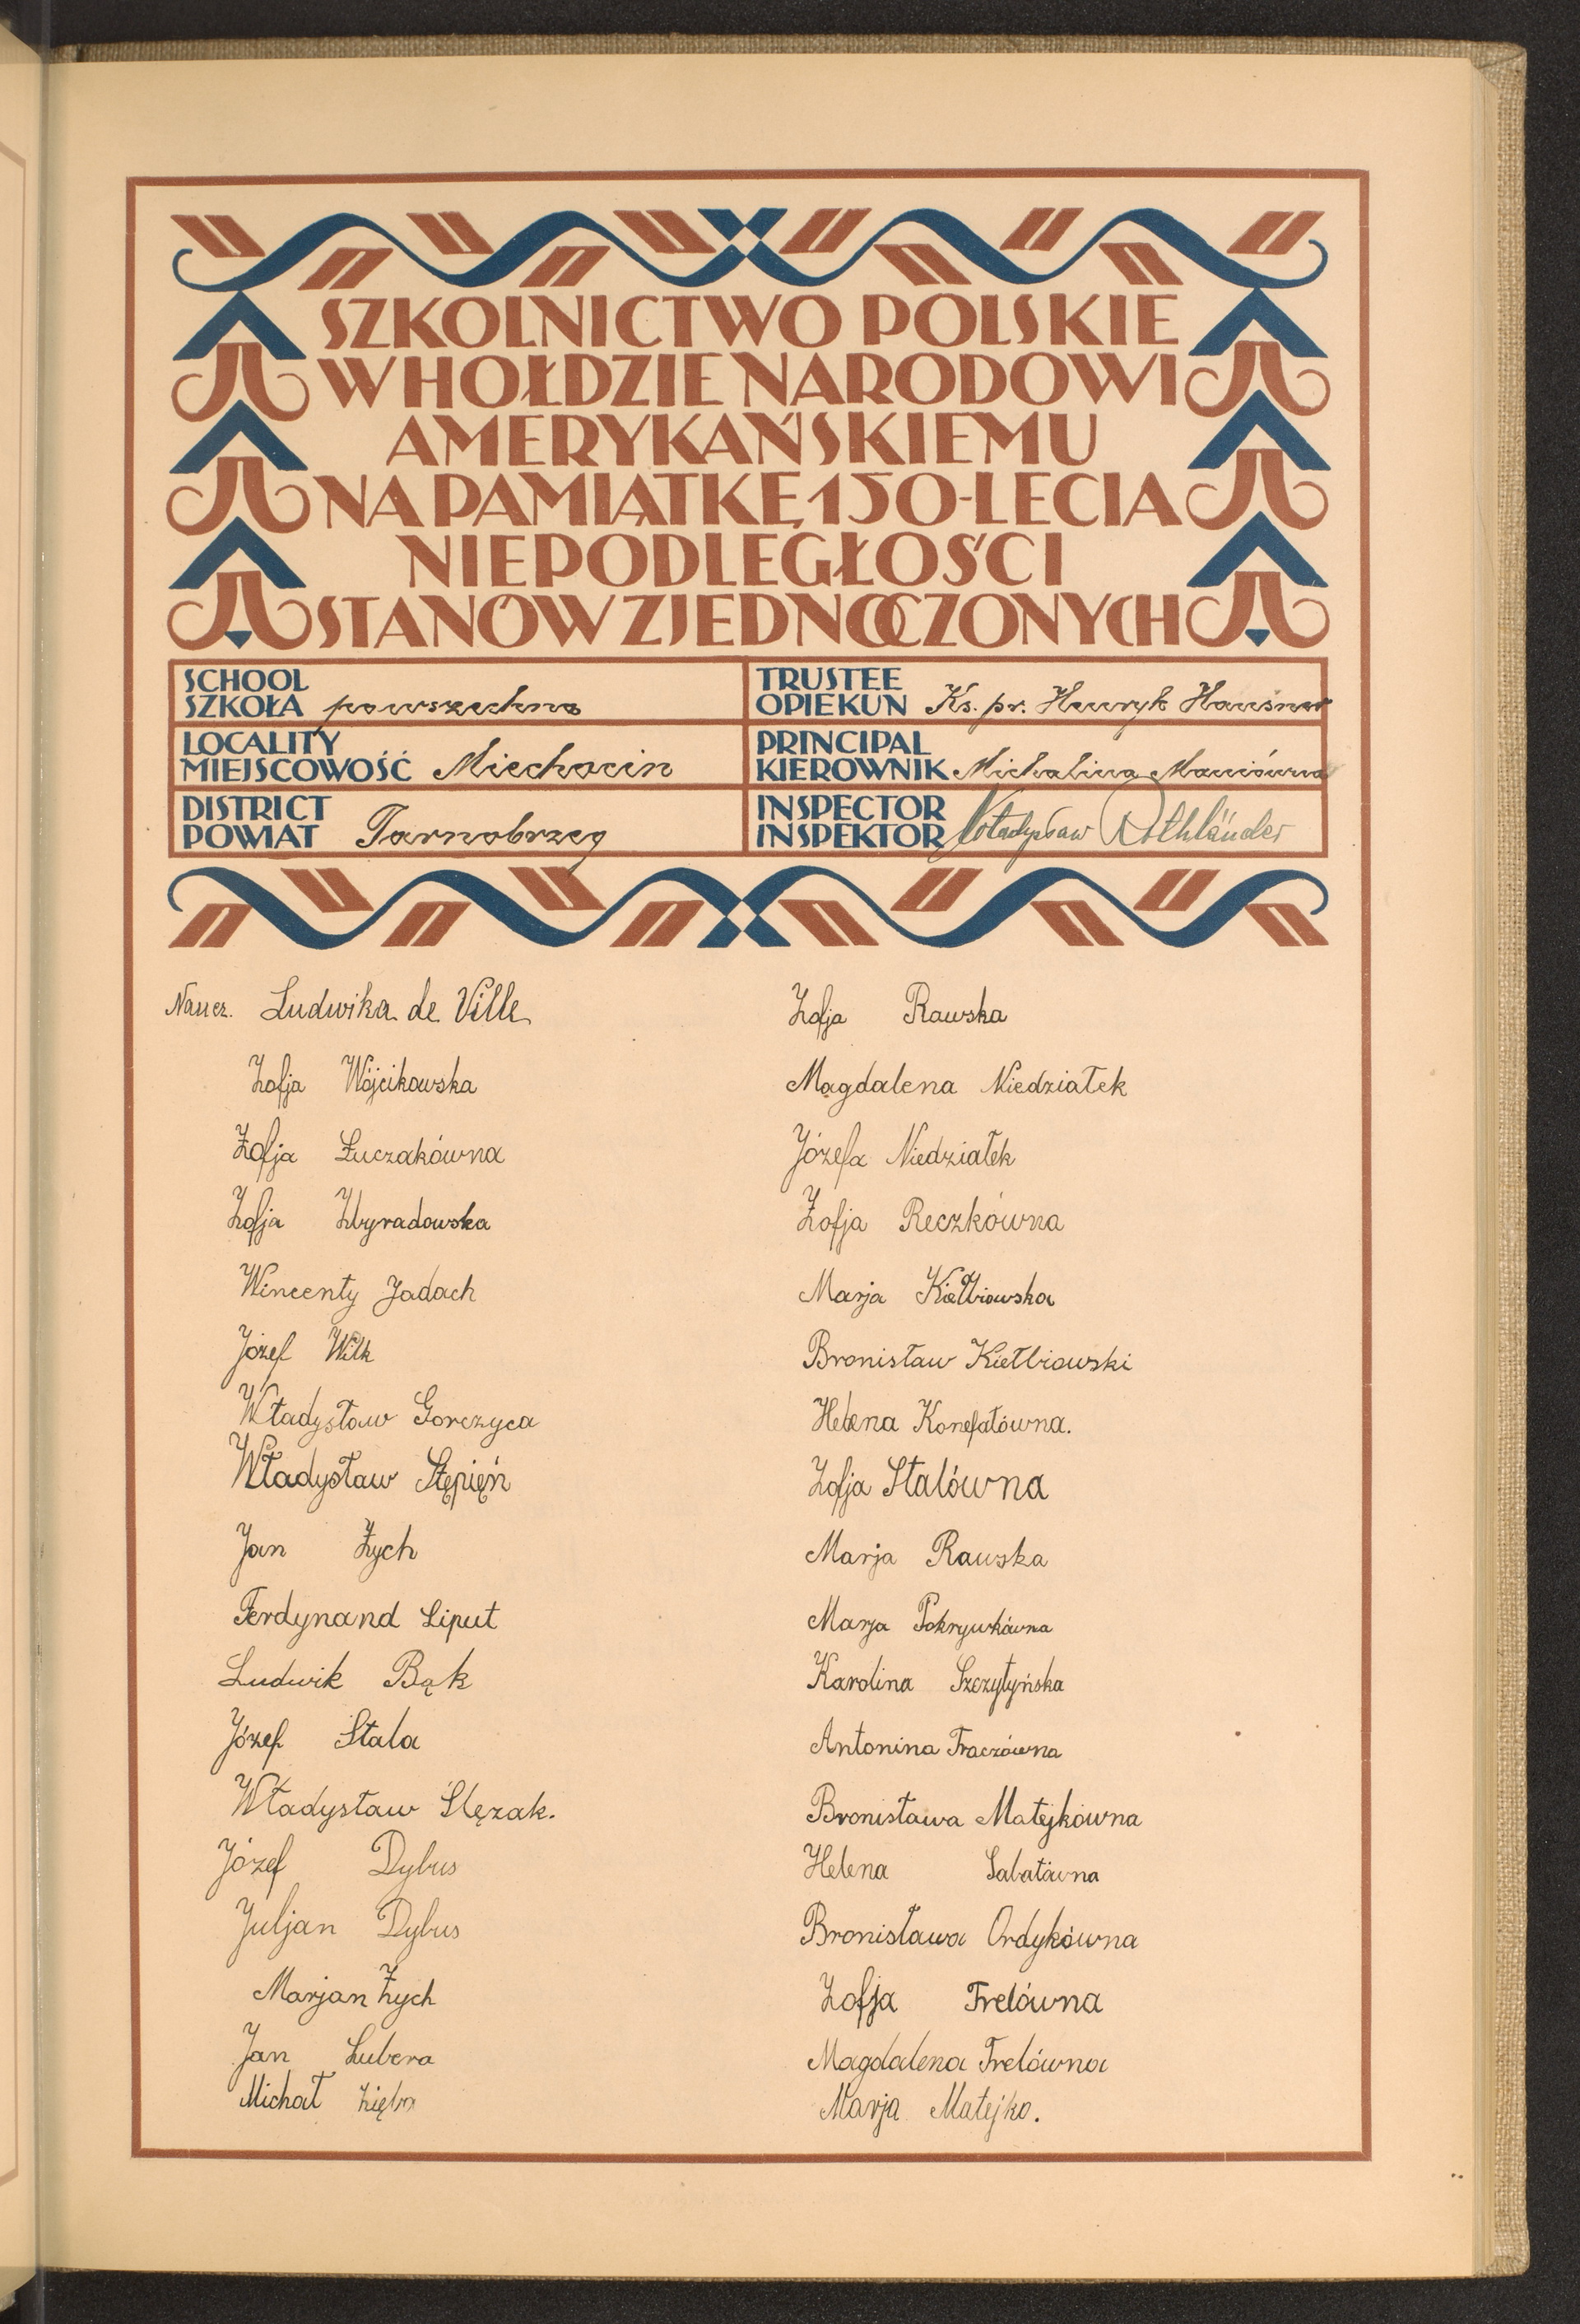 SZKOLNICTWO POLSKIE
W HOŁDZIE NARODOWI
AMERYKAŃSKIEMU
NA PAMIĄTKĘ 150-LECIA
NIEPODLEGŁOŚCI
STANÓW ZJEDNOCZONYCH
SCHOOL
SZKOŁA powszechna
TRUSTEE
OPIEKUN Ks. pr. Henryk Hausner
LOCALITY
MIEJSCOWOŚĆ Miechocin
PRINCIPAL
KIEROWNIK Michalina Maniówna
DISTRICT
POWIAT Tarnobrzeg
INSPECTOR
INSPEKTOR Władysław Rothländer
Naucz. Ludwika de Ville
Zofja Wójcikowska
Zofja Łuczakówna
Zofja Zbyradowska
Wincenty Jadach
Józef Wilk
Władysław Gorczyca
Władysław Stępięń
Jan Zych
Ferdynand Liput
Ludwik Bąk
Józef Stala
Władysław Ślęzak.
Józef Dybus
Juljan Dybus
Marjan Zych
Jan Lubera
Michał Zięba
Zofja Rawska
Magdalena Niedziałek
Józefa Niedziałek
Zofja Reczkówna
Marja Kiełbiowska
Bronisław Kiełbiowski
Helena Konefałówna.
Zofja Stalówna
Marja Rawska
Marja Pokrywkówna
Karolina Szczytyńska
Antonina Traczówna
Bronisława Matejkówna
Helena Sabatówna
Bronisława Ordykówna
Zofja Frelówna
Magdalena Frelówna
Marja Matejko.